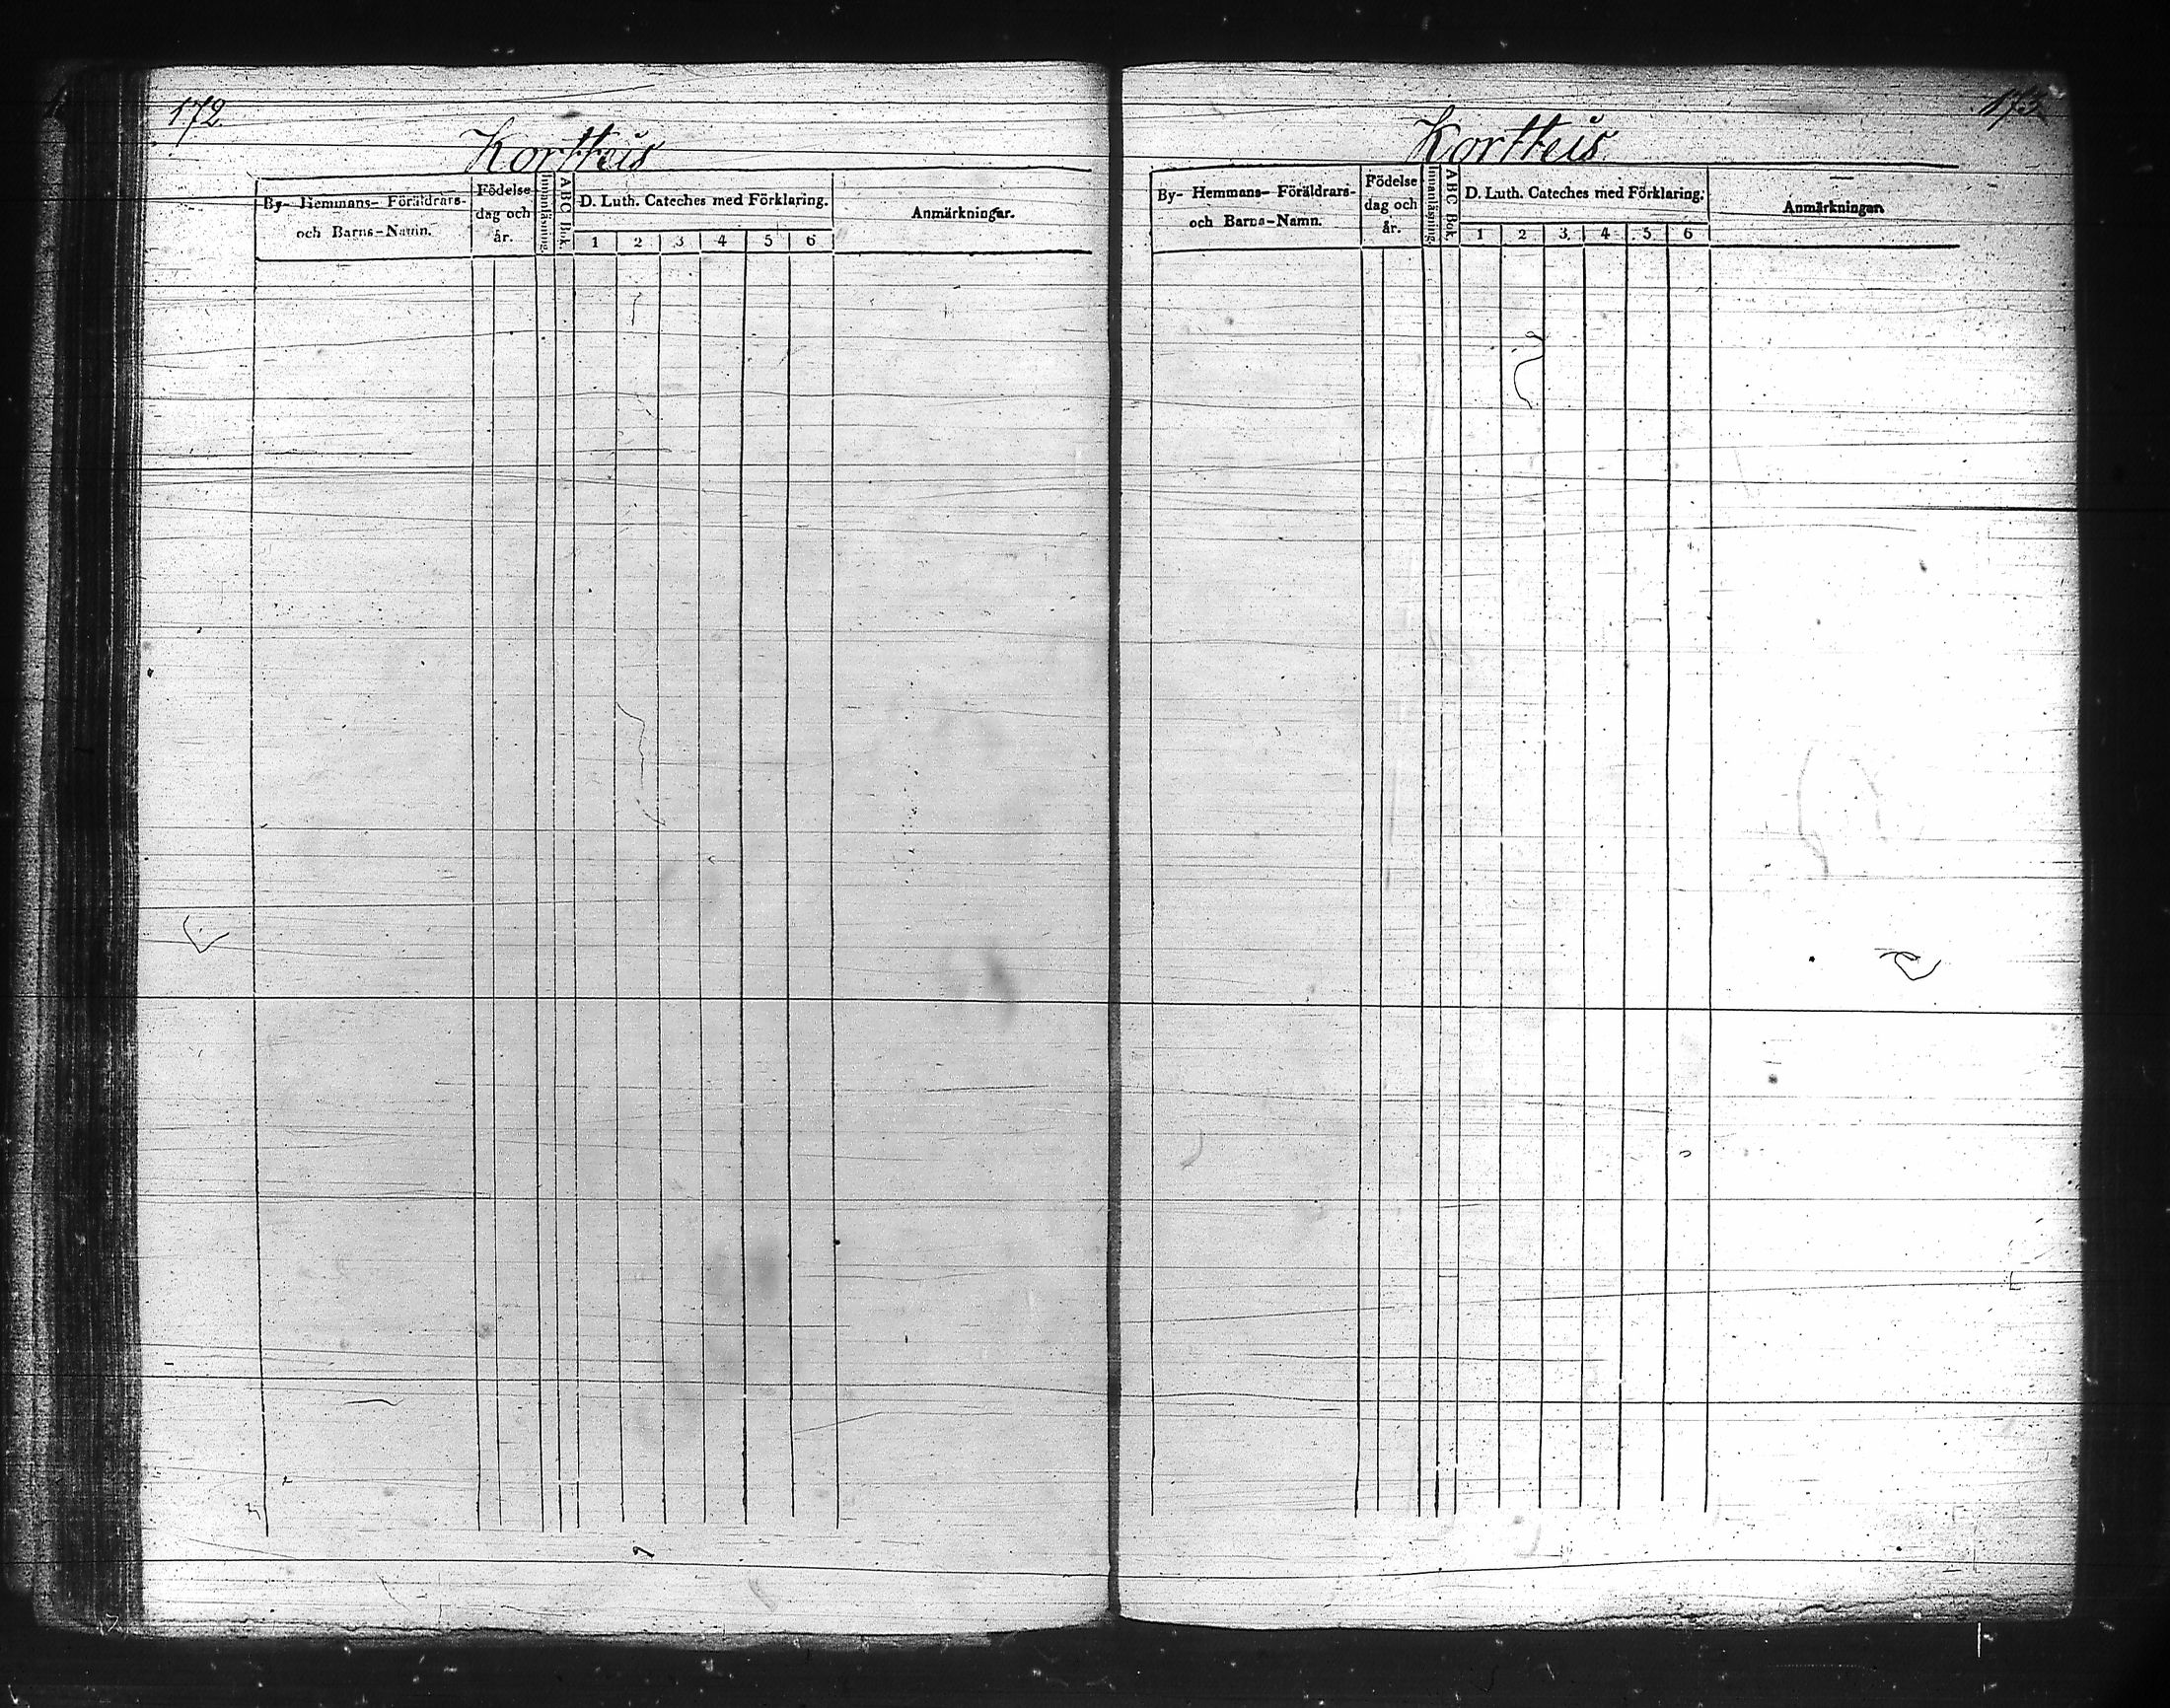 172.
Kortteis
By- Hemmans- Föräldrars-
och Barns-Namn.
Födelse
dag och
år.
Innanläsning.
ABC Bok.
D. Luth. Cateches med Förklaring.
1 2 3 4 5 6
Anmärkningar.
173.
Kortteis
By- Hemmans- Föräldrars-
och Barns-Namn.
Födelse
dag och
år.
Innanläsning.
ABC Bok.
D. Luth. Cateches med Förklaring.
1 2 3 4 5 6
Anmärkningar.